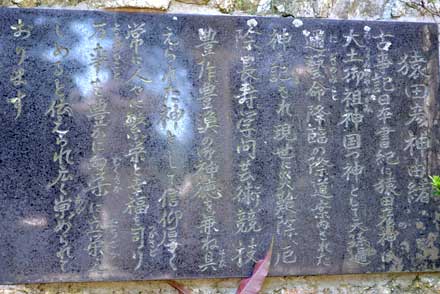 猿田彦神由緒
古事記日本書記に猿田彦神は
大土御祖神国つ神として天孫邇
邇藝命降臨の際道案内された
神と記され現世では災除け厄
除長寿学問芸術競技
豊作豊漁の神徳を兼ね具
えられた神として信仰厚く
常に人々に繁栄と幸福を司り
幸を豊かに
しめると伝えられ広く崇められて
おります